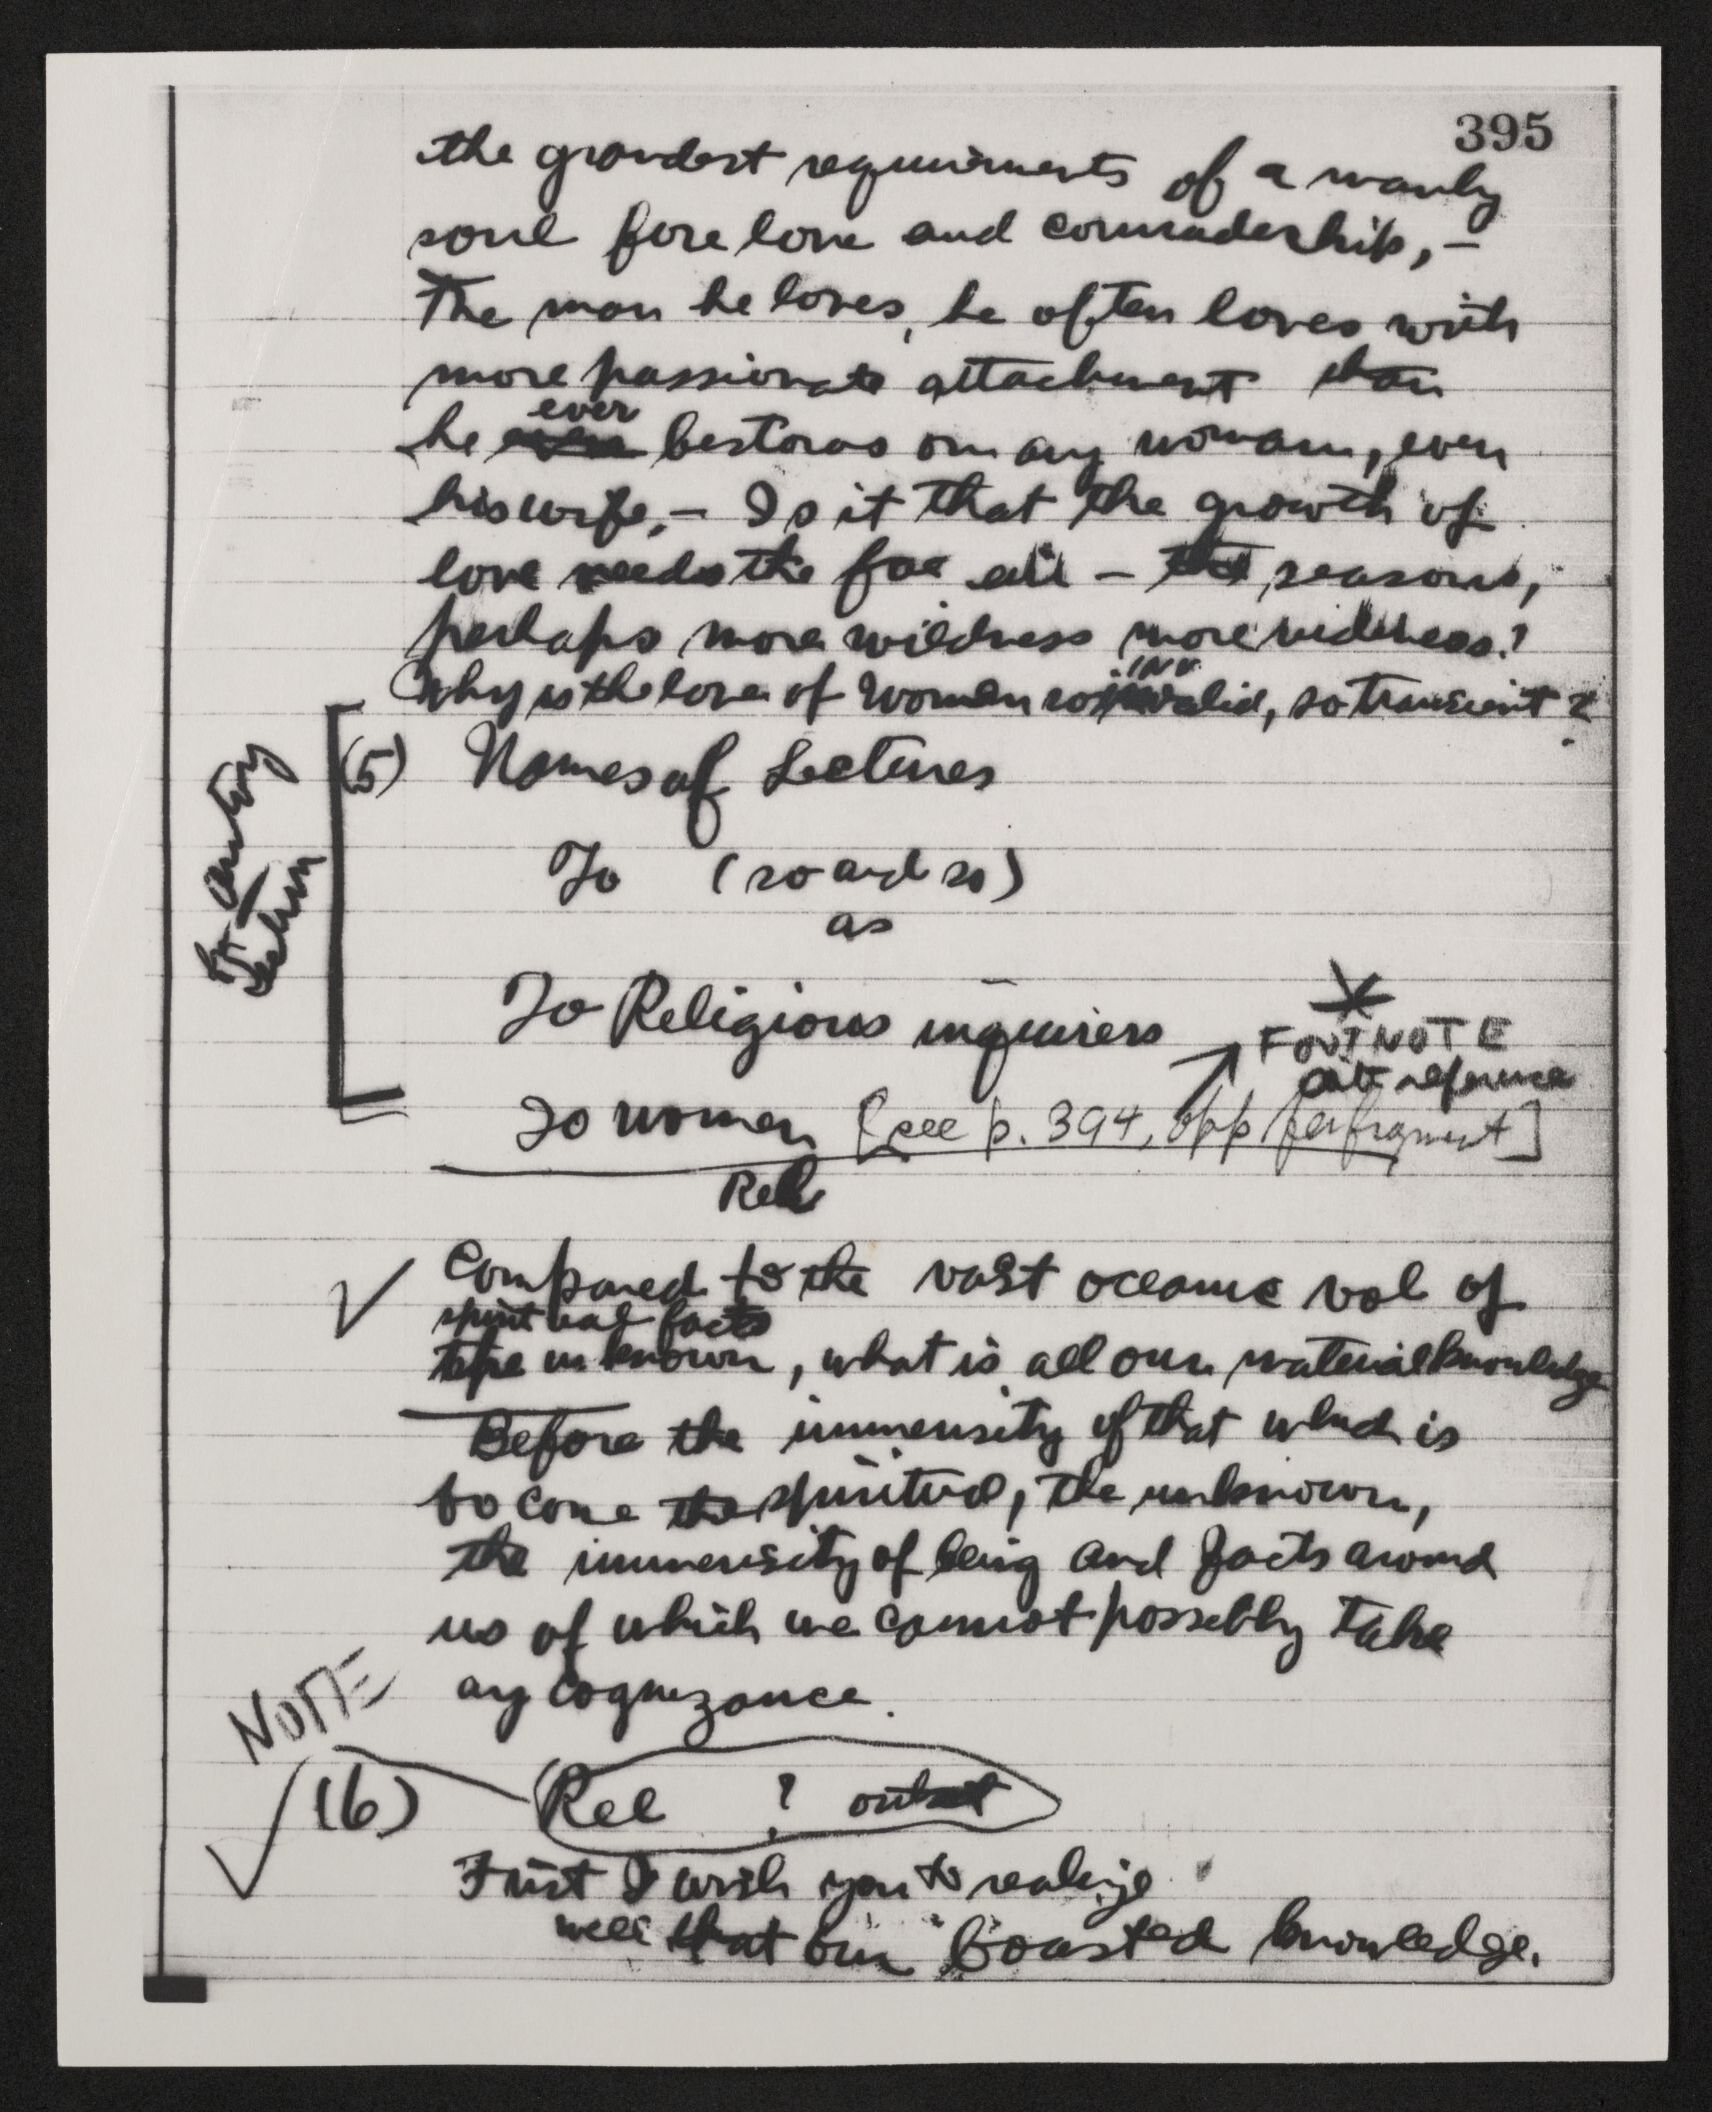 395
the grandest requirements of a manly
soul for love and comradeship, –
The man he loves, he often loves with
more passionate attachment than
ever
he bestows on any woman, even
his wife, – Is it that the growth of
love needs the free air – the seasons,
perhaps more wildness more rudeness?
Why is the love of women so invalid, so transient?
(5) Names of Lectures
To (so and so)
as
To Religious inquirers
*
FOOTNOTE
reference
To women [see p. 394, opp for fragment]
Rel
✓ Compared to the vast oceanic vol of
spiritual facts
unknown, what is all our material knowledge
Before the immensity of that which is
to come the spiritual, the unknown,
the immensity of being and facts around
us of which we cannot possibly take
any cognizance.
NOTE
✓ (6) Rel ? outset
First I wish you to realize
well that our boasted knowledge,